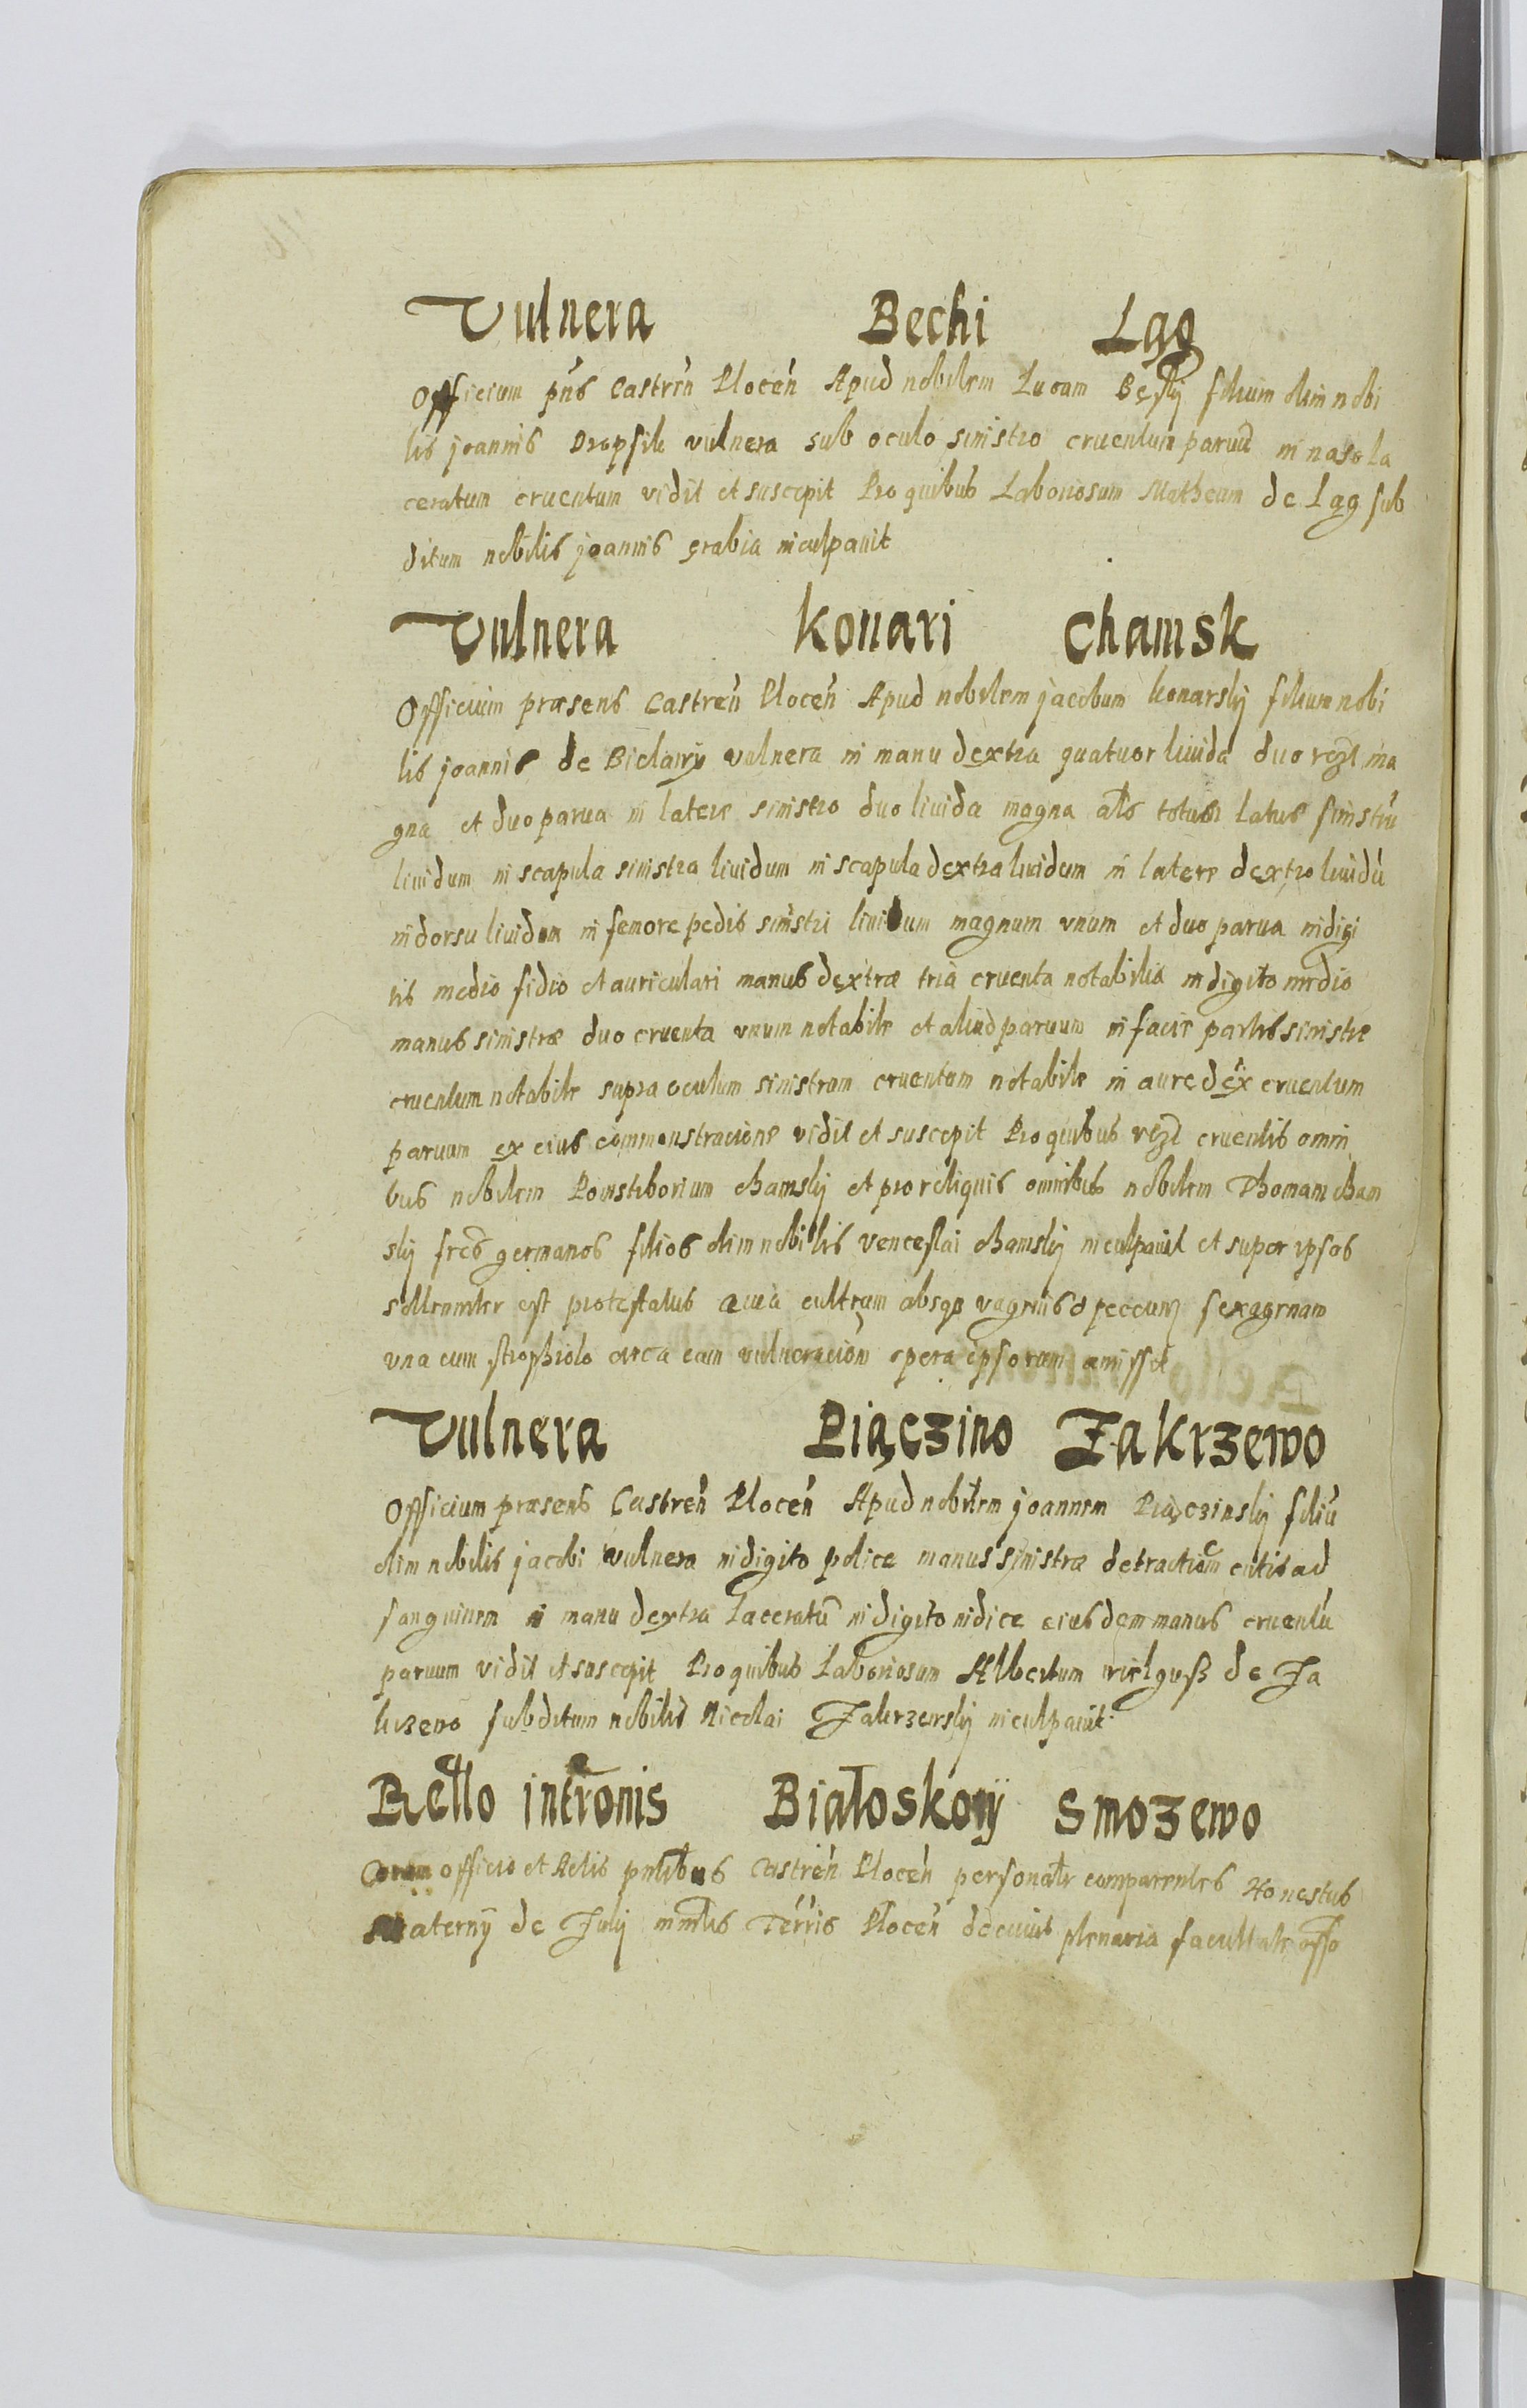 Vulnera Bechi Ląg
Officium pns Castren Plocen Apud nobilem Lucam Bęsky filium olim nobi
lis joannis Dropsik vulnera sub oculo sinistro cruentum paruu in naso la
ceratum cruentum vidit et suscepit Pro quibus Laboriosum Matheum de Ląg sub
ditum nobilis joannis grabia inculpauit
Vulnera Konari Chamsk
Officium præsens Castren Plocen Apud nobilem jacobum konarsky filium nobi
lis joannis de vulnera in manu dextra quatuor liuida duo vczt ma
gna et duo parua in latere sinistro duo liuida magna als totum latus sinistru
liuidum in scapula sinistra liuidum in scapula dextra liuidum in latere dextro liuidu
in dorsu liuidum in femore pedis sinistri liuidum magnum vnum et duo parua in digi
tis medio fidio et auriculari manus dextræ tria cruenta notabilia in digito medio
manus sinistræ duo cruenta vnum notabile et aliud paruum in facie partis sinistre
cruentum notabile supra oculum sinistrum cruentum notabile in aure dex cruentum
paruum ex eius commonstracione vidit et suscepit Pro quibus vczt cruentis omni
bus nobilem chamsky et pro reliquis omnibus nobilem Thomam cham
sky fres germanos filios olim nobilis venceslai chamsky inculpauit et super ipsos
sollemniter est protestatus quia cultrum absq vaginis sexagenam
vna cum strophiolo circa eam vulneracion opera ipsorum amisset
Vulnera Piączino Zakrzewo
Officium præsens Castren Plocen Apud nobilem joannem Piączinsky filiu
olim nobilis jacobi vulnera in digito police manus sinistræ detractiom cutis ad
sanguinem in manu dextra laceratu in digito indice eiusdem manus cruentu
paruum vidit et suscepit Pro quibus Laboriosum Albertum wielguss de Za
krzewo subditum nobilis Nicolai Zakrzewsky inculpauit
Rello intronis Białoskory Smozewo
Coram officio et Actis pntibus Castren Plocen personalr comparentes Honestus
de July mntlis Terris Plocen de cuius plenaria facultate offo